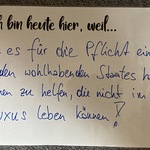 h bin heute hier, weil...
es für die Pflicht ein
den wohlhabenden Staates h
en zu helfen, die nicht im
uxus leben können!